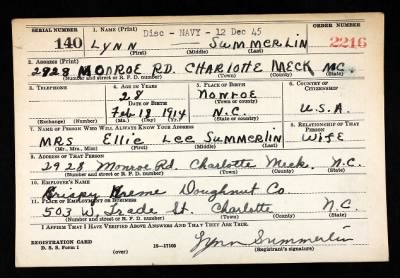 SERIAL NUMBER 1. NAME (Print) Disc - NAVY - 12 Dec 45 ORDER NUMBER
140 LYNN SUMMERLIN 2216
(First) (Middle) (Last)
2. ADDRESS (Print)
2928 MONROE RD. CHARLOTTE MECK NC.
(Number and street or R. F. D. number) (Town) (County) (State)
3. TELEPHONE 4. AGE IN YEARS 5. PLACE OF BIRTH 6. COUNTRY OF CITIZENSHIP
28 MONROE
DATE OF BIRTH (Town or county)
Feb 18 1914 N.C. U.S.A.
(Exchange) (Number) (Mo.) (Day) (Yr.) (State or country)
7. NAME OF PERSON WHO WILL ALWAYS KNOW YOUR ADDRESS 8. RELATIONSHIP OF THAT PERSON
MRS Ellie Lee Summerlin Wife
(Mr., Mrs., Miss) (First) (Middle) (Last)
9. ADDRESS OF THAT PERSON
2928 Monroe Rd. Charlotte Meck. N.C.
(Number and street or R. F. D. number) (Town) (County) (State)
10. EMPLOYER'S NAME
Krispy Kreme Doughnut Co
11. PLACE OF EMPLOYMENT OR BUSINESS
503 W. Trade St. Charlotte N.C.
(Number and street or R. F. D. number) (Town) (County) (State)
I AFFIRM THAT I HAVE VERIFIED ABOVE ANSWERS AND THAT THEY ARE TRUE.
REGISTRATION CARD
D. S. S. Form 1 (over) 16—17105 Lynn Summerlin
(Registrant's signature)